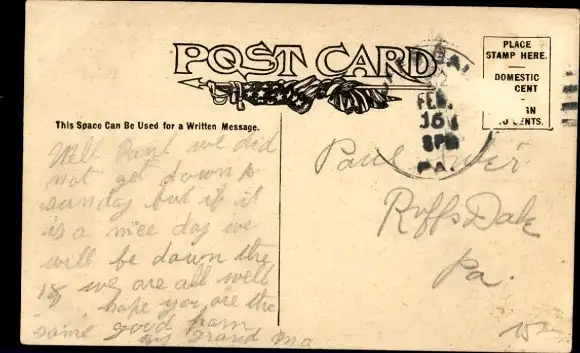 POST CARD
PLACE
STAMP HERE.
DOMESTIC
CENT
IN
CENTS.
FEB.
16
8 PM
PA.
This Space Can Be Used for a Written Message.
Well Paul we did
not get down
sunday but if it
is a nice day we
will be down the
18 we are all well
hope you are the
same good
grand ma
Paul
Ruffs Dale
Pa.